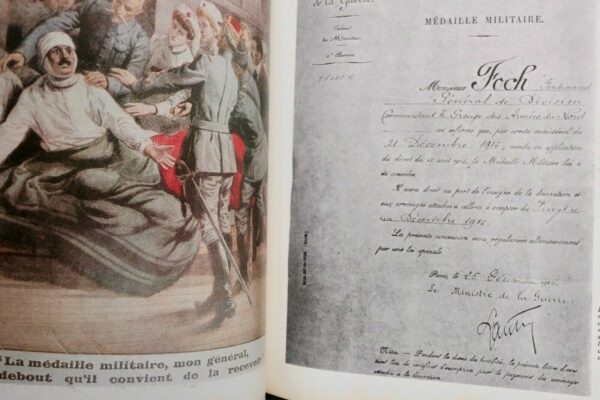 La médaille militaire, mon général,
debout qu'il convient de la recevoir
de la Guerre
MÉDAILLE MILITAIRE.
Monsieur Foch Ferdinand
Général de Division
Commandant le Groupe des Armées du Nord
est informé que, par arrêté ministériel du
Décembre 1916, rendu en application
du décret du 13 août 1914, la Médaille Militaire lui a
été conférée.
Il aura droit au port de l'insigne de la décoration et
aux avantages attachés à celle-ci à compter du
Décembre 1916.
La présente concession sera régularisée ultérieurement
par une loi spéciale.
Paris, le 25 Décembre
Le Ministre de la Guerre,
Nota. — Pendant la durée des hostilités, la présente lettre d'avis
tient lieu de certificat d'inscription pour le payement des avantages
attachés à la décoration.